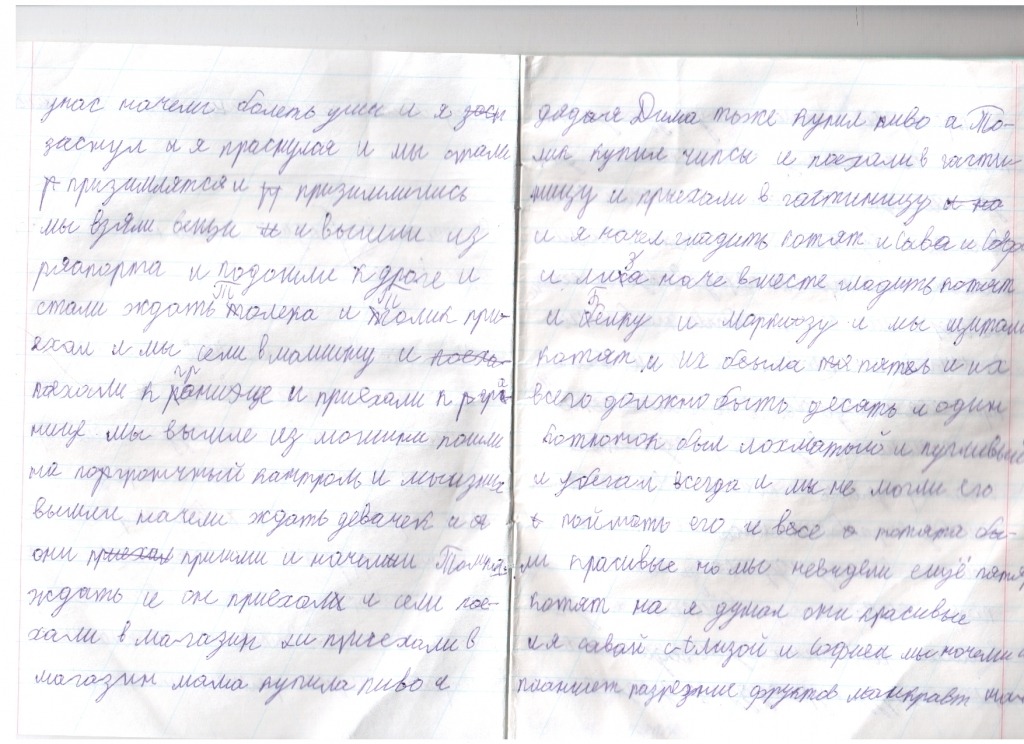 унас начели болеть уши и я засн
заснул и я праснулся и мы стали
призимлятся и пр призимлились
мы взяли вещи и и вышли из
ряапорта и подошли к драге и
стали ждать Толека и Толик при-
ехал и мы сели в машину и поеха-
паехали к границе и приехали к гра-
нице мы вышле из мошини пошли
на пограничный кантроль и мы
вышли начели ждать девачек и а
они приехал пришли и начели Толика
ждать и он приехал и сели пое-
хали в магазин и приехали в
магазин мама купила пиво и
дядя Дима тоже купил пиво а То-
лик купил чипсы и поехали в гасти-
ницу и приехали в гастиницу и на
и я начел гладить котят и Сава и
и лиза наче вместе гладить котят
и Белку и Маркизу и мы щитали
котят и их была па пять и их
всего должно быть десять и один
котионок был лохматый и пугливый
и убегал всегда и мы не могли его
поймать его и все котята бы-
ли красивые но мы невидели ещё пять
котят на я думал они красивые
и я савай с Лизой и мы начели
планшет разрезние фруктов маинкравт